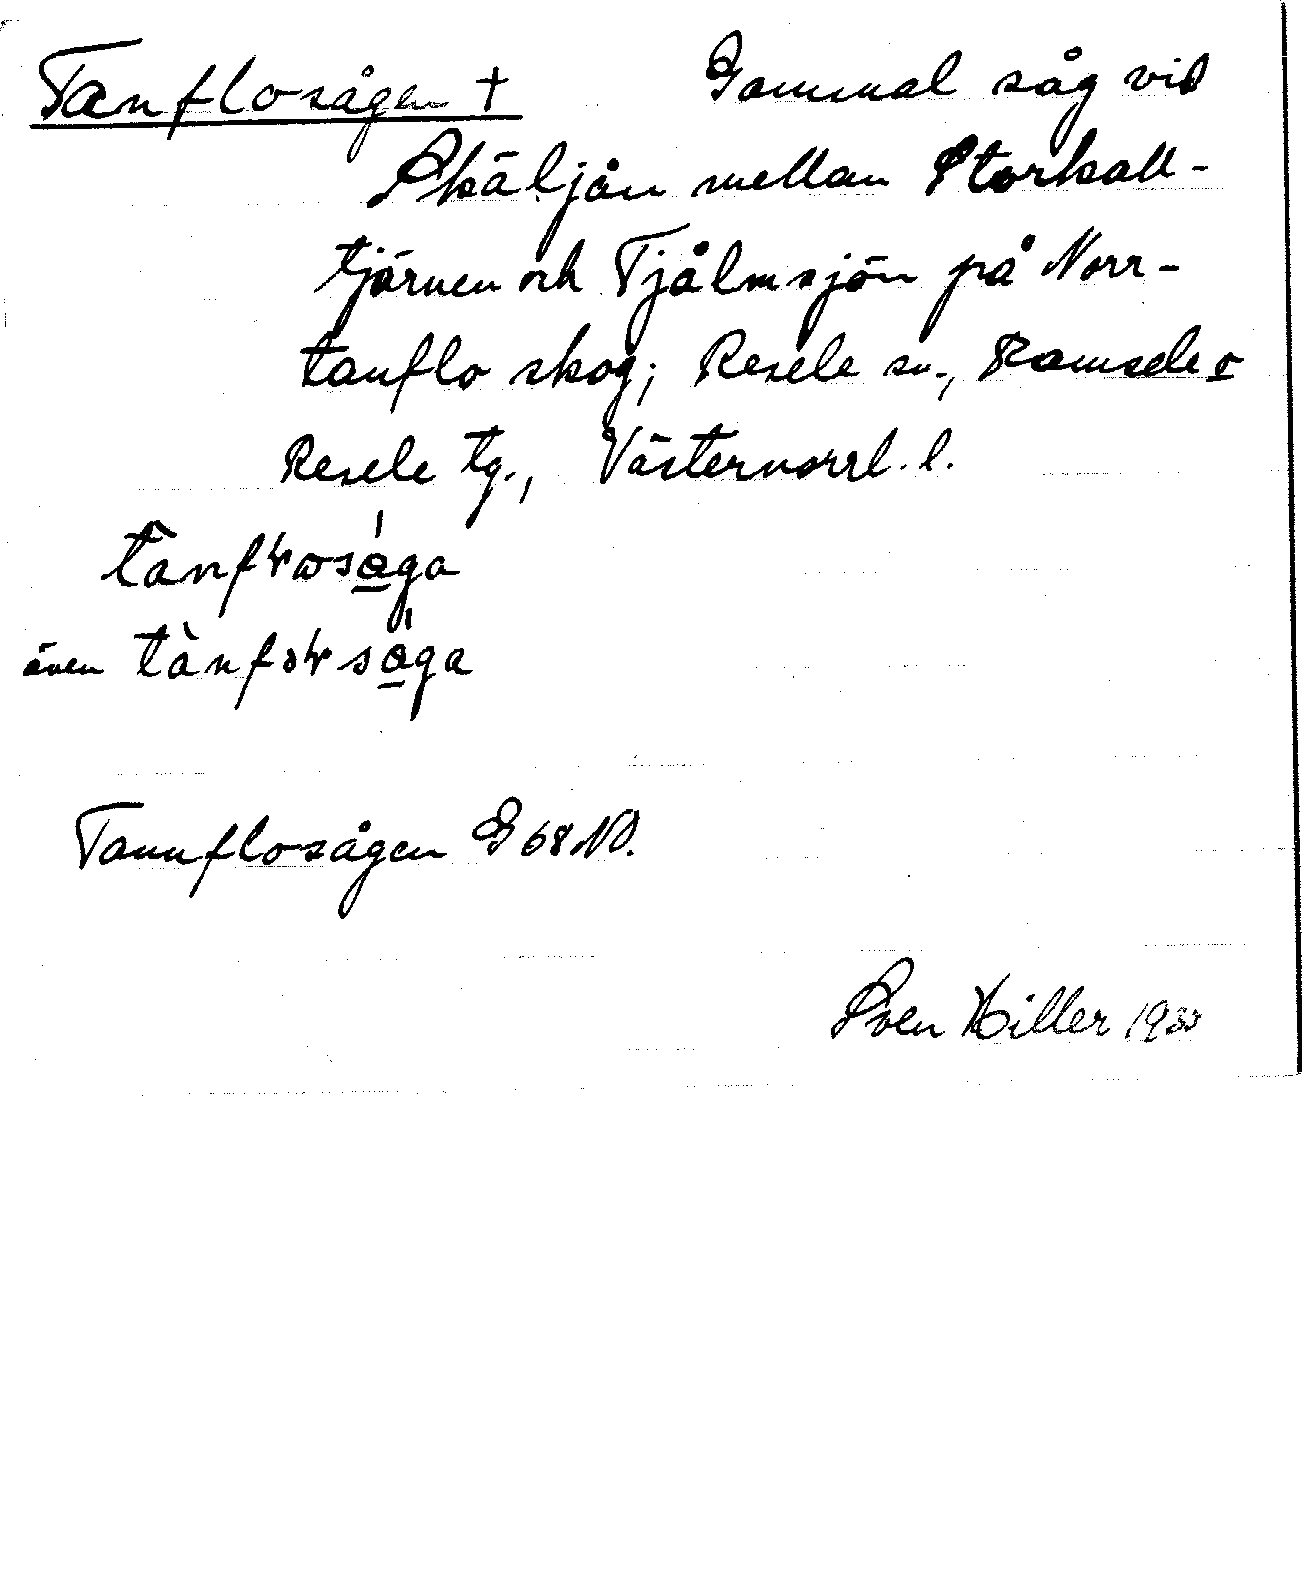 Tanflosågen †
Gammal såg vid
Skäljån mellan Storkall-
tjärnen och Tjålmsjön på Norr-
tanflo skog; Resele sn., Ramsele o
Resele tg., Västernorrl. l.
även
Tannflosågen G 68 NV.
Sven Hiller